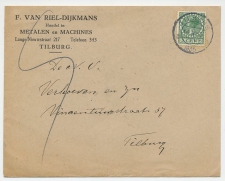 F. VAN RIEL-DIJKMANS
Handel in
METALEN en MACHINES
Lange Nieuwstraat 217 Telefoon 543
TILBURG
De N.V.
Verhoeven en Zn
Vincentiusstraat 57
Tilburg